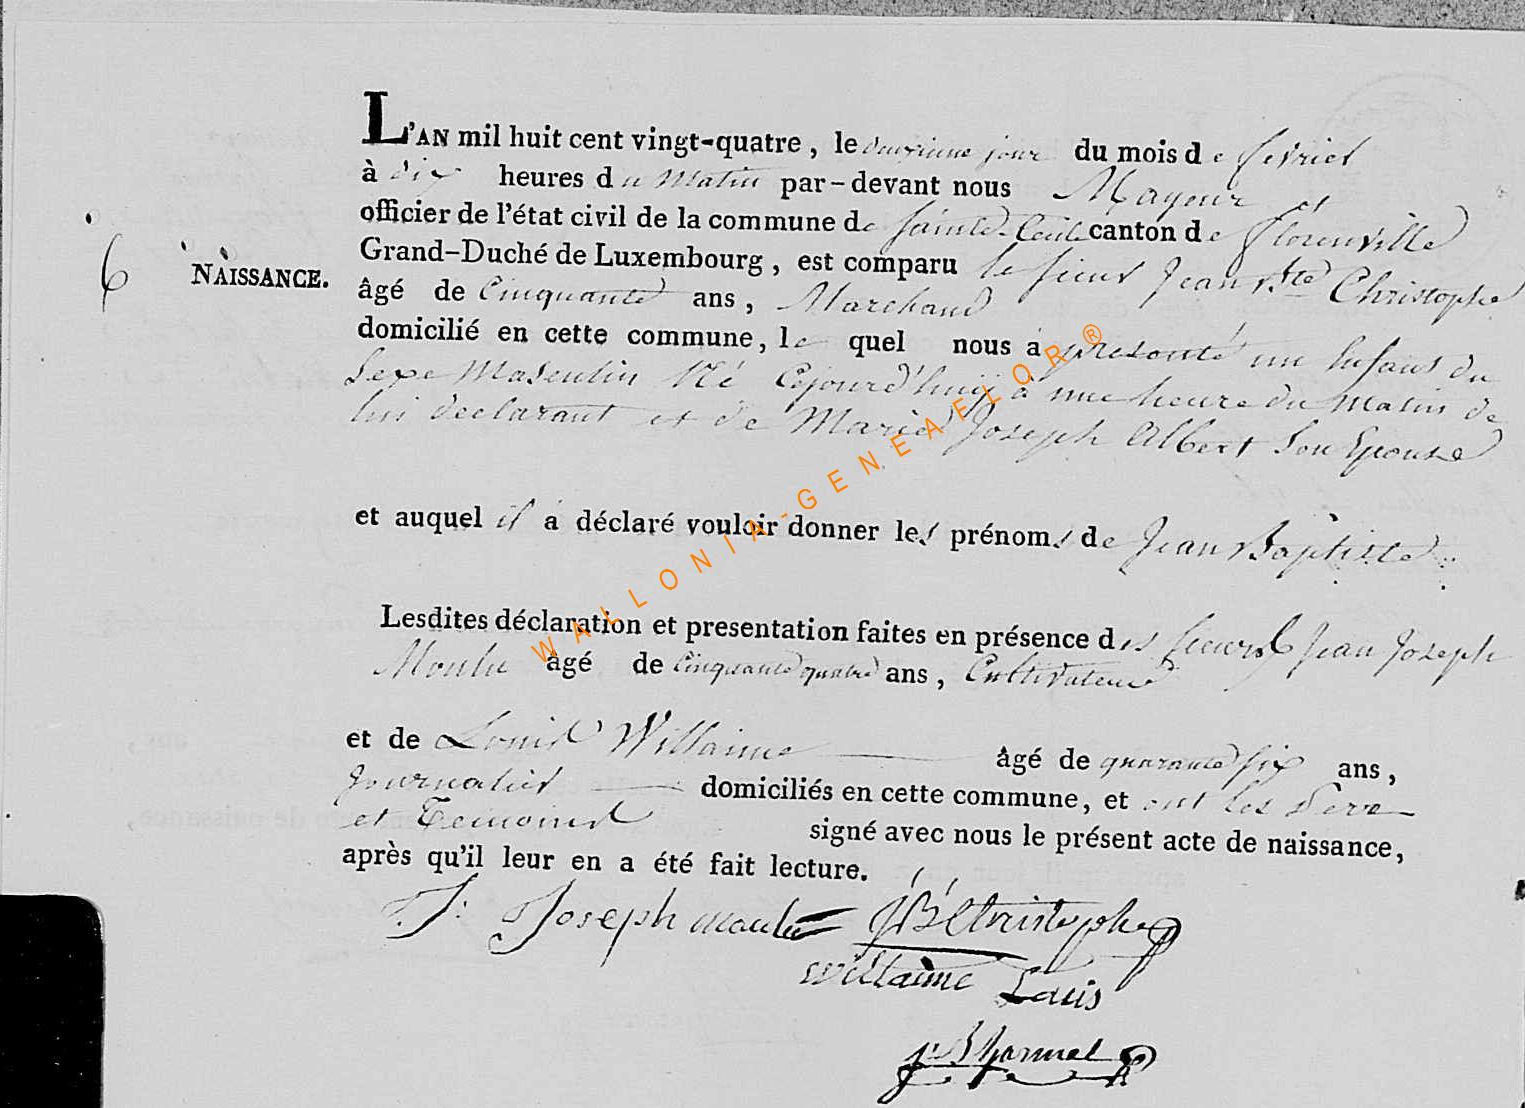 L'AN mil huit cent vingt-quatre, le deuxieme jour du mois de fevrier
à dix heures du Matin par-devant nous Mayeur et
officier de l'état civil de la commune de Sainte-Cecile canton de florenville
Grand-Duché de Luxembourg, est comparu le sieur Jean Bte Christophe
6 NAISSANCE.
âgé de Cinquante ans, Marchand
domicilié en cette commune, le quel nous a presenté un Enfant du
Sexe Masculin Né Cejourd'huij à une heure du Matin de
lui declarant et de Marie Joseph Albert Son Epouse
et auquel il a déclaré vouloir donner les prénoms de Jean Baptiste
Lesdites déclaration et presentation faites en présence des sieurs Jean Joseph
Moulu âgé de Cinquante quatre ans, Cultivateur
et de Louis Willaime âgé de quarante six ans,
Journalier domiciliés en cette commune, et ont les Pere
et Temoins signé avec nous le présent acte de naissance,
après qu'il leur en a été fait lecture.
J: Joseph moulu JB Christophe
Willaime Louis
WALLONIA-GENEAFLOR®